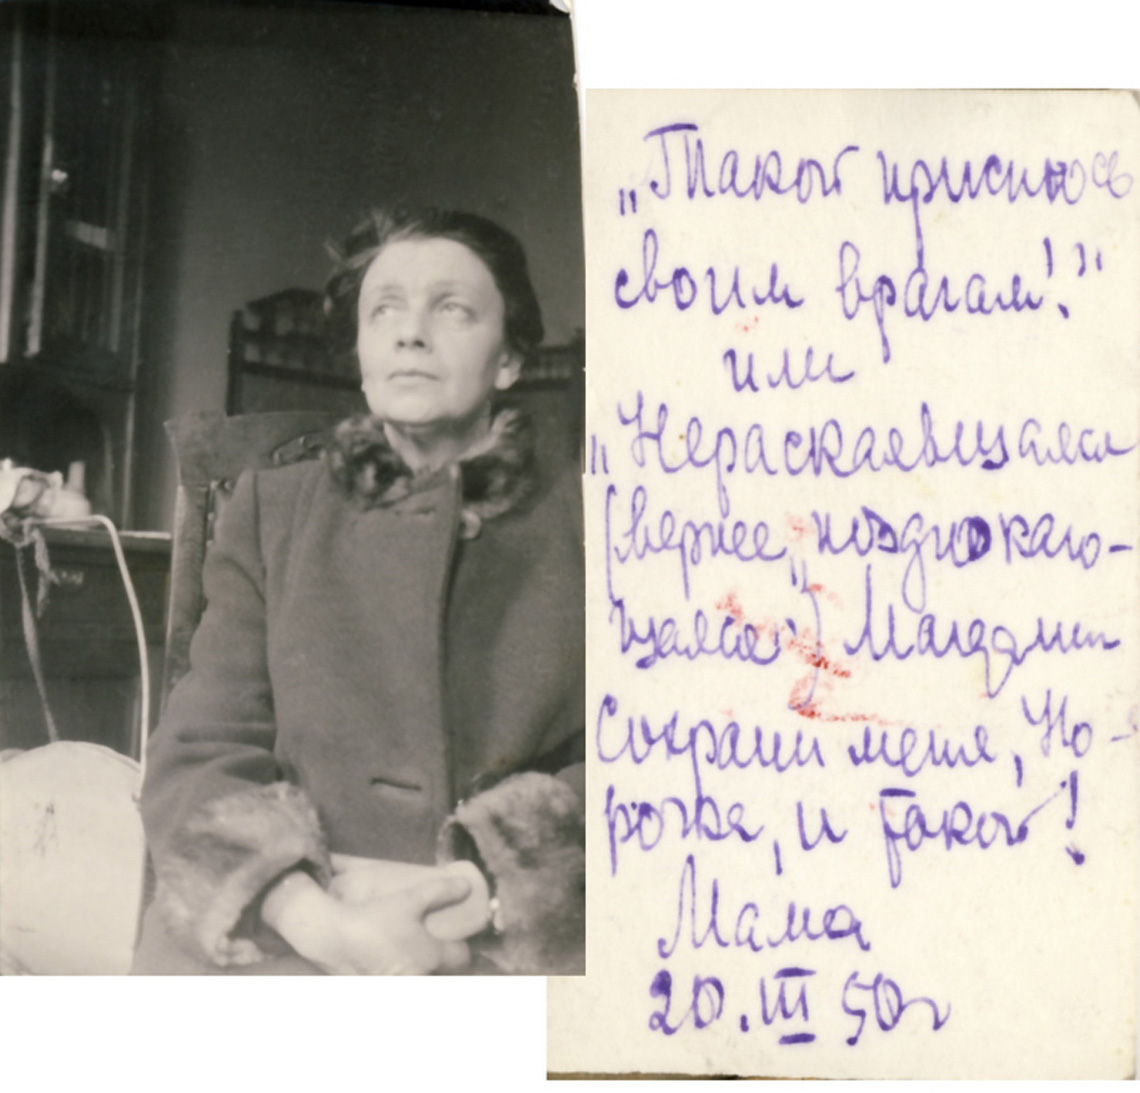 „Такой приснюсь
своим врагам!?"
или
„Нераскаявшаяся
(вернее, „поздно каю-
щаяся") Магдалин
Сохрани меня, Но-
рочка, и такой!
Мама
20.III 50г